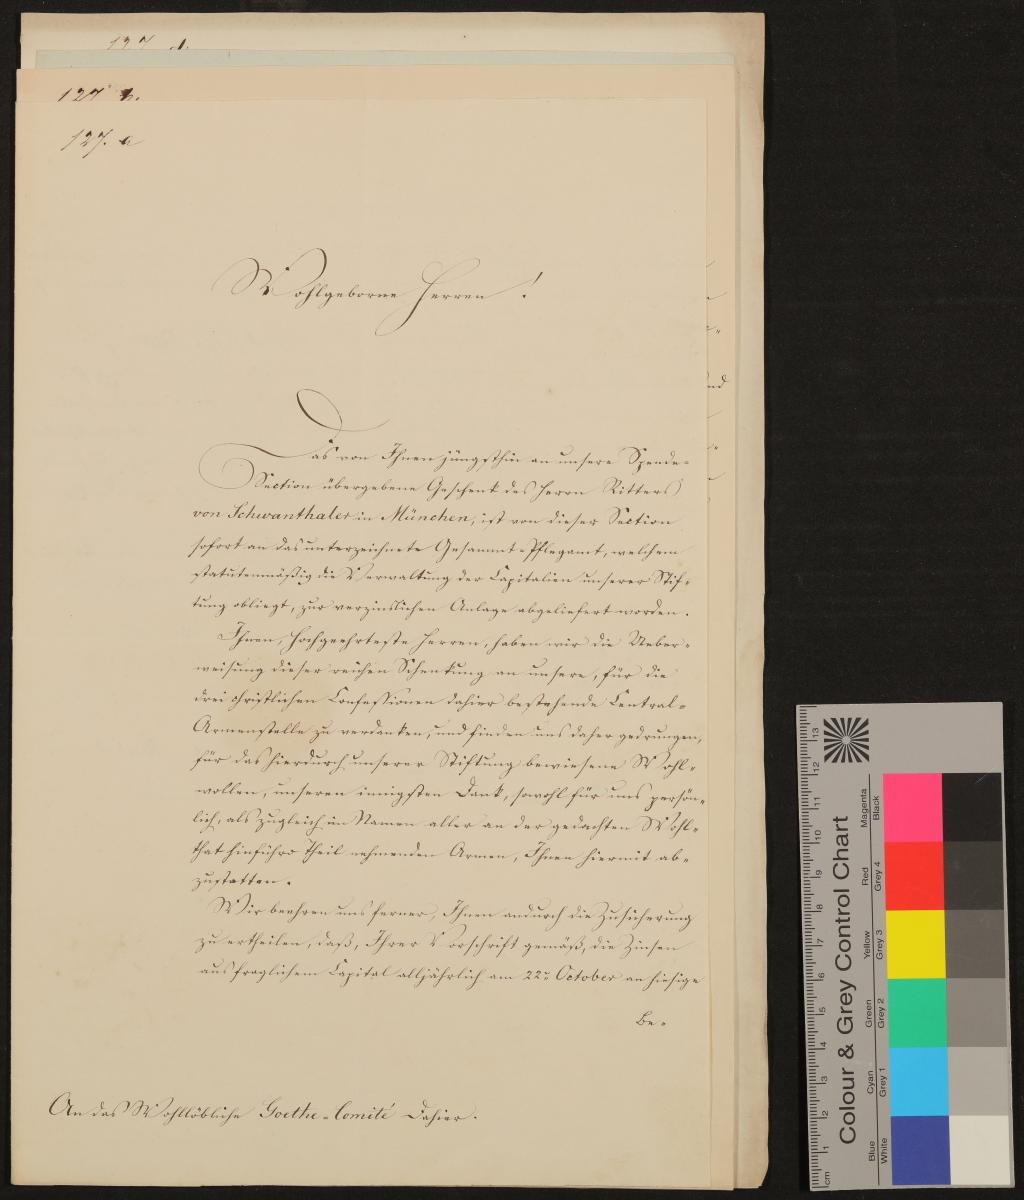 127. d.
127 b.
127. a
Wohlgeborne Herren!
Das von Ihnen jüngsthin an unsere Spende-
Section übergebene Geschenk des Herrn Ritters
von Schwanthaler in München, ist von dieser Section
sofort an das unterzeichnete Gesammt-Pflegamt, welchem
statutenmäßig die Verwaltung der Capitalien unserer Stif-
tung obliegt, zur verzinslichen Anlage abgeliefert worden.
Ihnen, hochgeehrteste Herren, haben wir die Ueber-
weisung dieser reichen Schenkung an unsere, für die
drei christlichen Confessionen dahier bestehende Central-
Armenstelle zu verdanken, und finden uns daher gedrungen,
für das hierdurch unserer Stiftung bewiesene Wohl-
wollen, unseren innigsten Dank, sowohl für uns persön-
lich, als zugleich im Namen aller an der gedachten Wohl-
that hinführo Theil nehmenden Armen, Ihnen hiermit ab-
zustatten.
Wir beehren uns ferner, Ihnen andurch die Zusicherung
zu ertheilen, daß, Ihrer Vorschrift gemäß, die Zinsen
aus fraglichem Capital alljährlich am 22n October an hiesige
Be-
An das Wohllöbliche Goethe-Comité Dahier.
nd
Colour & Grey Control Chart
Blue Cyan Green Yellow Red Magenta
White Grey 1 Grey 2 Grey 3 Grey 4 Black
cm 1 2 3 4 5 6 7 8 9 10 11 12 13